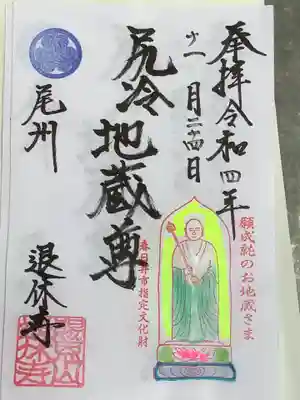 奉拝 令和四年
十一月二十四日
願成就のお地蔵さま
尻冷地蔵尊
春日井市指定文化財
尾州
退休寺